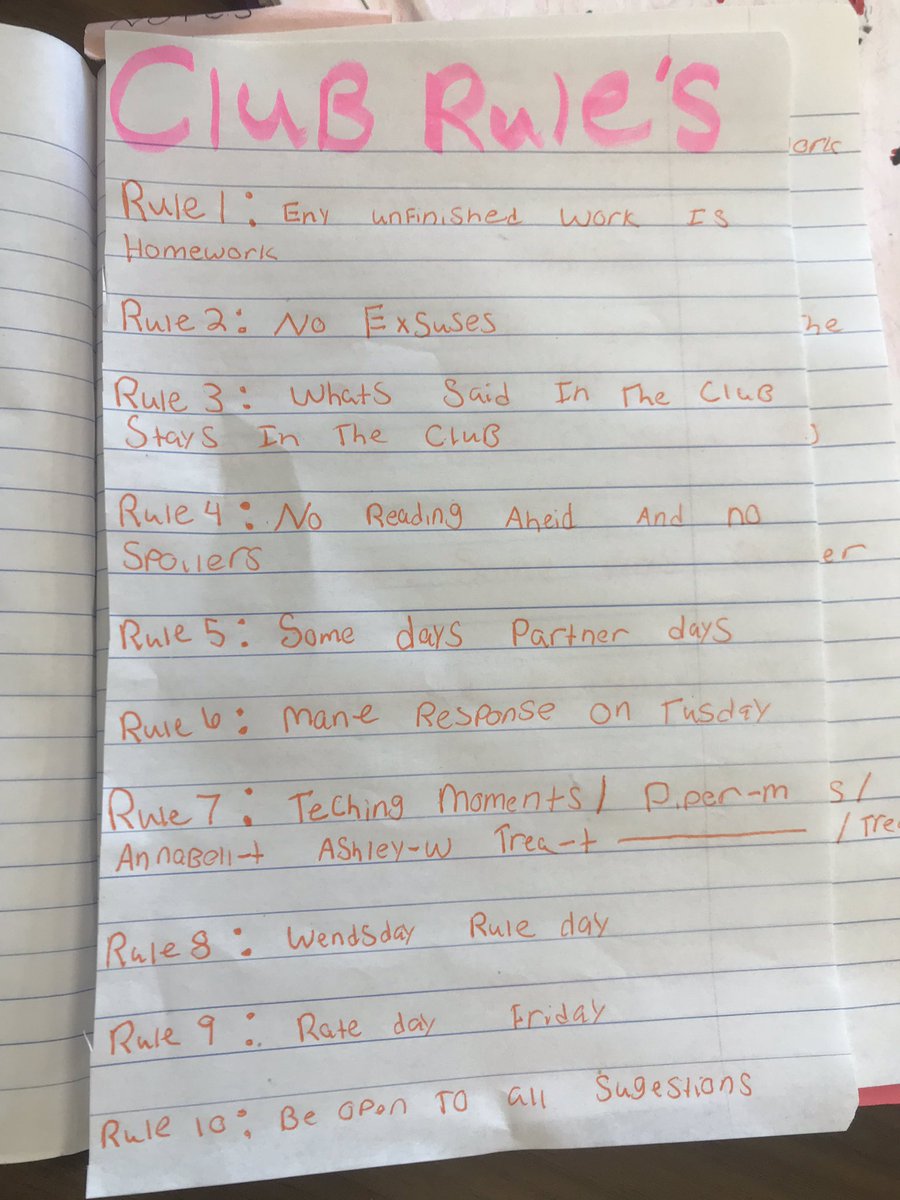 CluB Rule's
Rule 1: Eny unfinished work Is
Homework
Rule 2: No Exsuses
Rule 3: Whats Said In The CluB
Stays In The CluB
Rule 4: No Reading Aheid And no
Spoilers
Rule 5: Some days Partner days
Rule 6: Mane Response on Tusday
Rule 7: Teching Moments/ Piper-m s/
AnnaBell-t AShley-w Trea-t /Trea
Rule 8: Wendsday Rule day
Rule 9: Rate day Friday
Rule 10: Be open To all Sugestions
ork
he
er